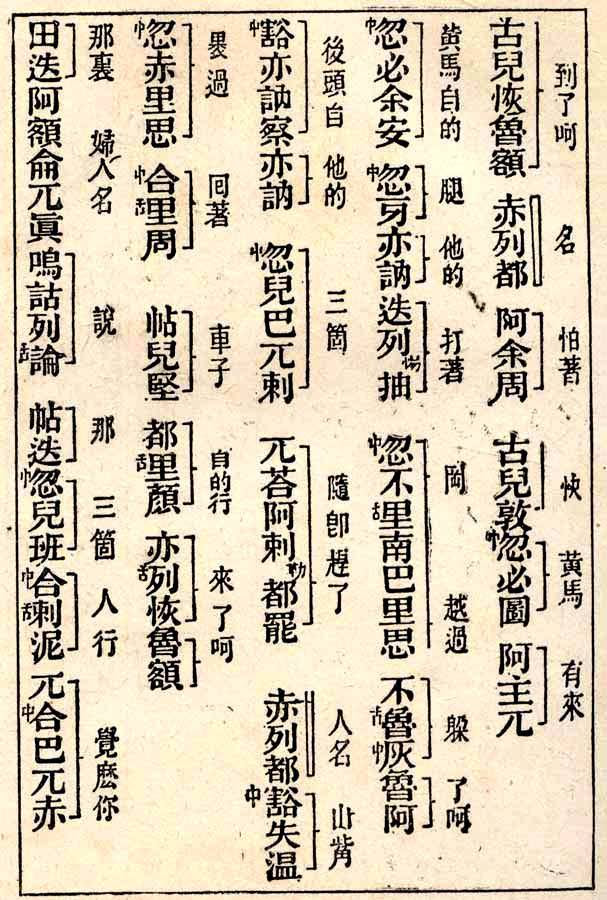 到了呵 名 怕著 快 黃馬 有來
古兒恢魯額 赤列都 阿余周 古兒敦中忽必圖 阿主兀
黃馬自的 腿 他的 打著 岡 越過 躱 了呵
中忽必余安 中忽牙亦訥 迭列勒抽 中忽不舌里南巴里思 不舌魯中灰魯阿
後頭自 他的 三箇 隨卽趕了 人名 山觜
中豁亦訥察亦訥 中忽兒巴兀剌 兀荅阿剌勒都罷 赤列都中豁失溫
過 囘著 車子 自的行 來了呵
中忽赤里思 中合舌里周 帖兒堅 都舌里顏 亦舌列恢魯額
那裏 婦人名 說 那 三箇 人行 覺麽你
田迭阿額侖兀眞嗚詁列舌論 帖迭中忽兒班中合舌剌泥 兀中合巴兀赤